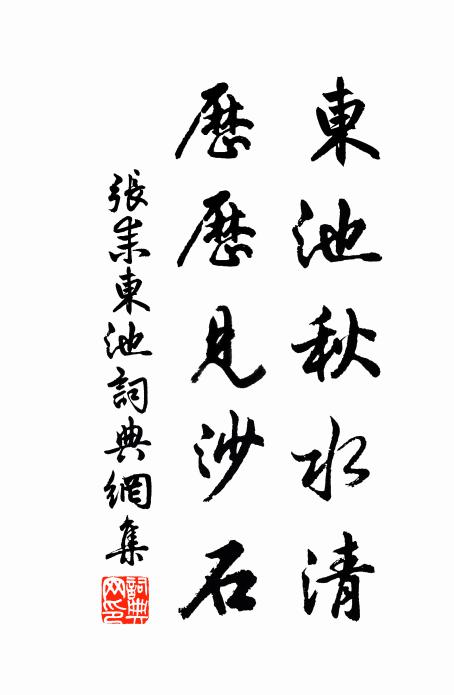 東池秋水清
歷歷見沙石
張耒東池詞典網集
詞典网印